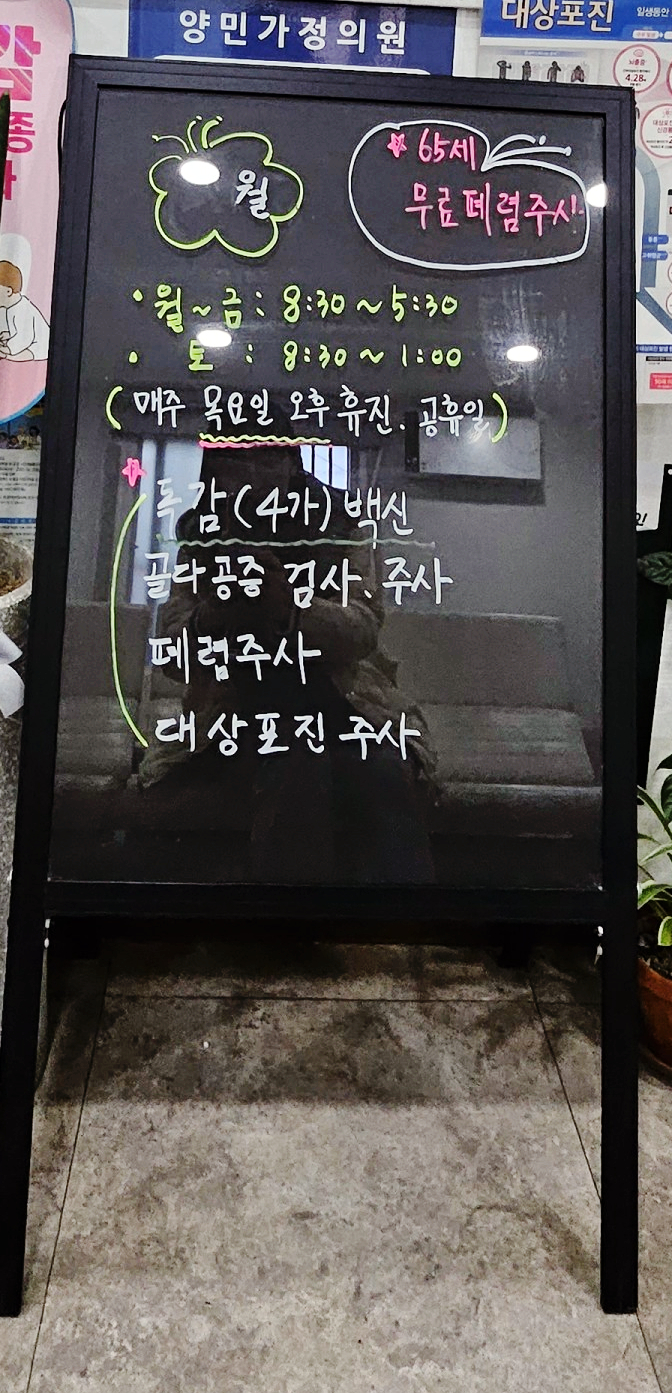 양민가정의원
대상포진
일생동안
4.28
월
65세
무료폐렴주사
• 월~금 : 8:30 ~ 5:30
• 토 : 8:30 ~ 1:00
(매주 목요일 오후 휴진. 공휴일)
독감(4가) 백신
골다공증 검사. 주사
폐렴주사
대상포진 주사